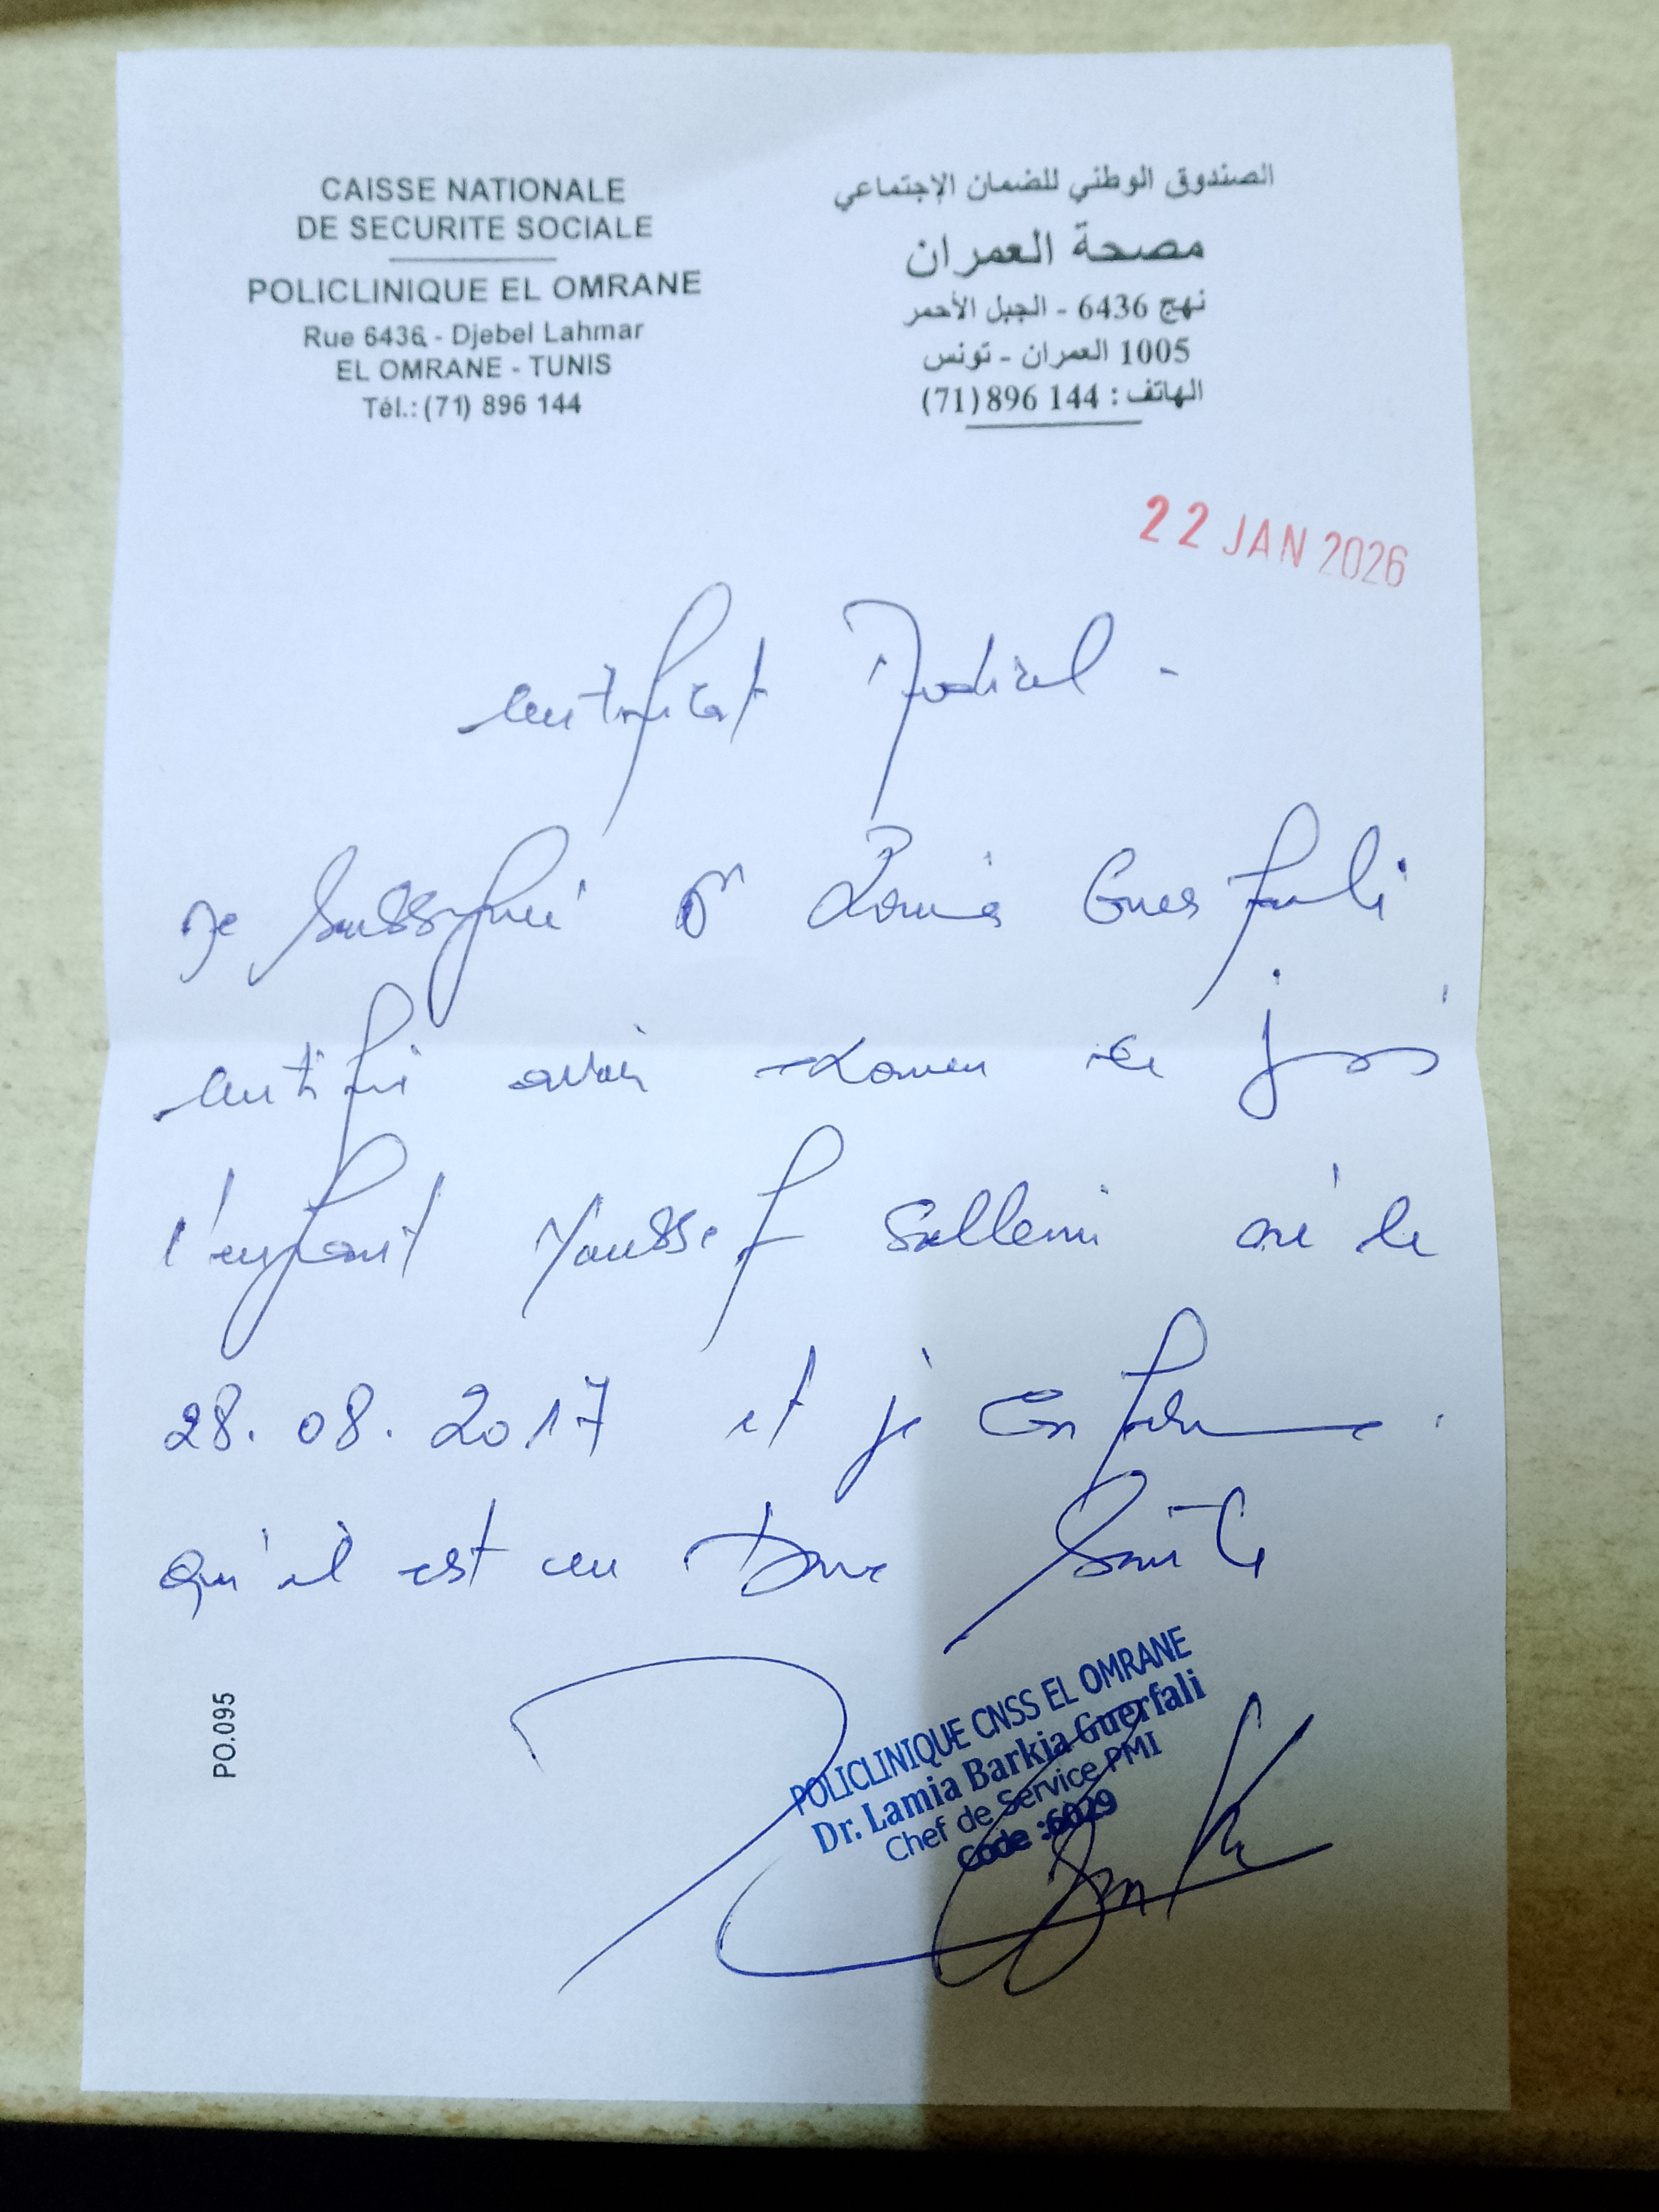 CAISSE NATIONALE
DE SECURITE SOCIALE
POLICLINIQUE EL OMRANE
Rue 6436 - Djebel Lahmar
EL OMRANE - TUNIS
Tél.: (71) 896 144
الصندوق الوطني للضمان الإجتماعي
مصحة العمران
نهج 6436 - الجبل الأحمر
1005 العمران - تونس
الهاتف : 144 896 (71)
22 JAN 2026
Certificat Médical
Je soussigné Dr Lamia Guerfali
certifie avoir examiné ce jour
l'enfant Youssef Sallemi né le
28.08.2017 et je confirme
qu'il est en bonne santé
POLICLINIQUE CNSS EL OMRANE
Dr. Lamia Barkia Guerfali
Chef de Service PMI
Code :6029
PO.095